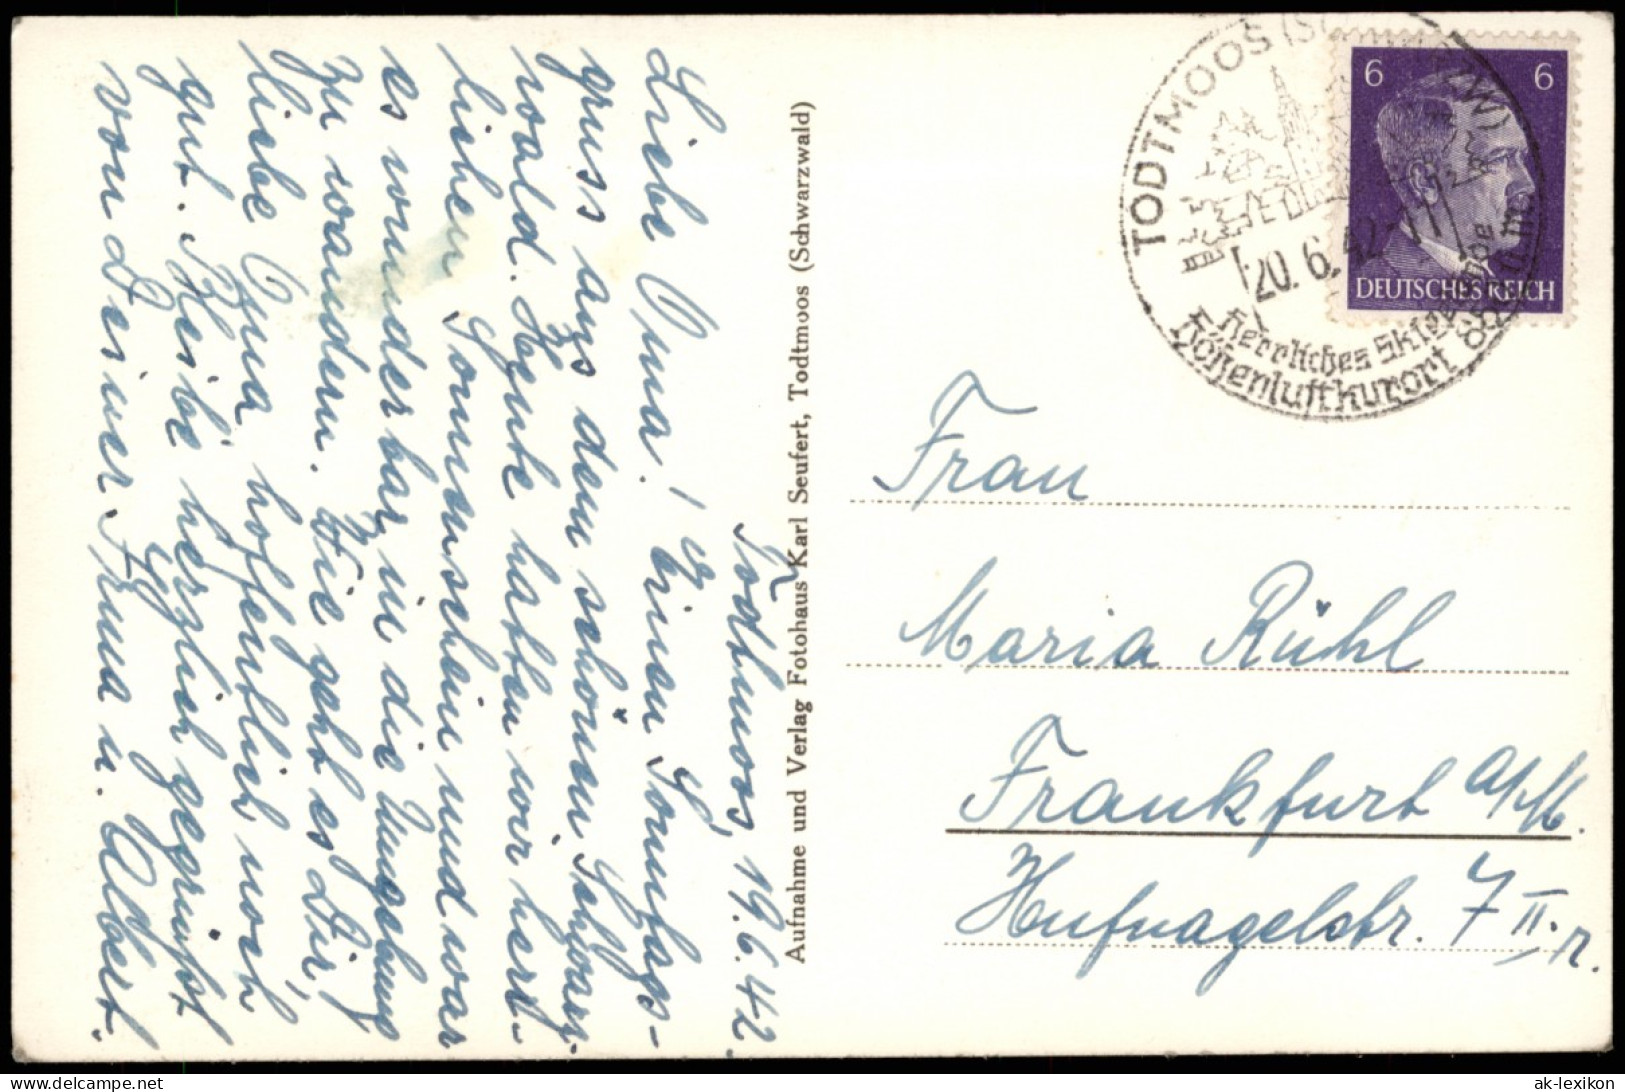 Todtmoos, 19.6.42
Liebe Oma! Einen Sonntags-
gruss aus dem schönen Schwarz-
wald. Heute hatten wir herr-
lichen Sonnenschein und war
es wunderbar in die Umgebung
zu wandern. Wie geht es Dir,
liebe Oma, hoffentlich noch
gut. Bleibe herzlich gegrüßt
von Deiner Anna u. Albert.
Aufnahme und Verlag Fotohaus Karl Seufert, Todtmoos (Schwarzwald)
TODTMOOS (SCHWARZW)
20.6.42
Herrliches Skigelände
Höhenluftkurort
6 6
DEUTSCHES REICH
Frau
Maria Rühl
Frankfurt a/M.
Hufnagelstr. 7 II. r.
ak-lexikon